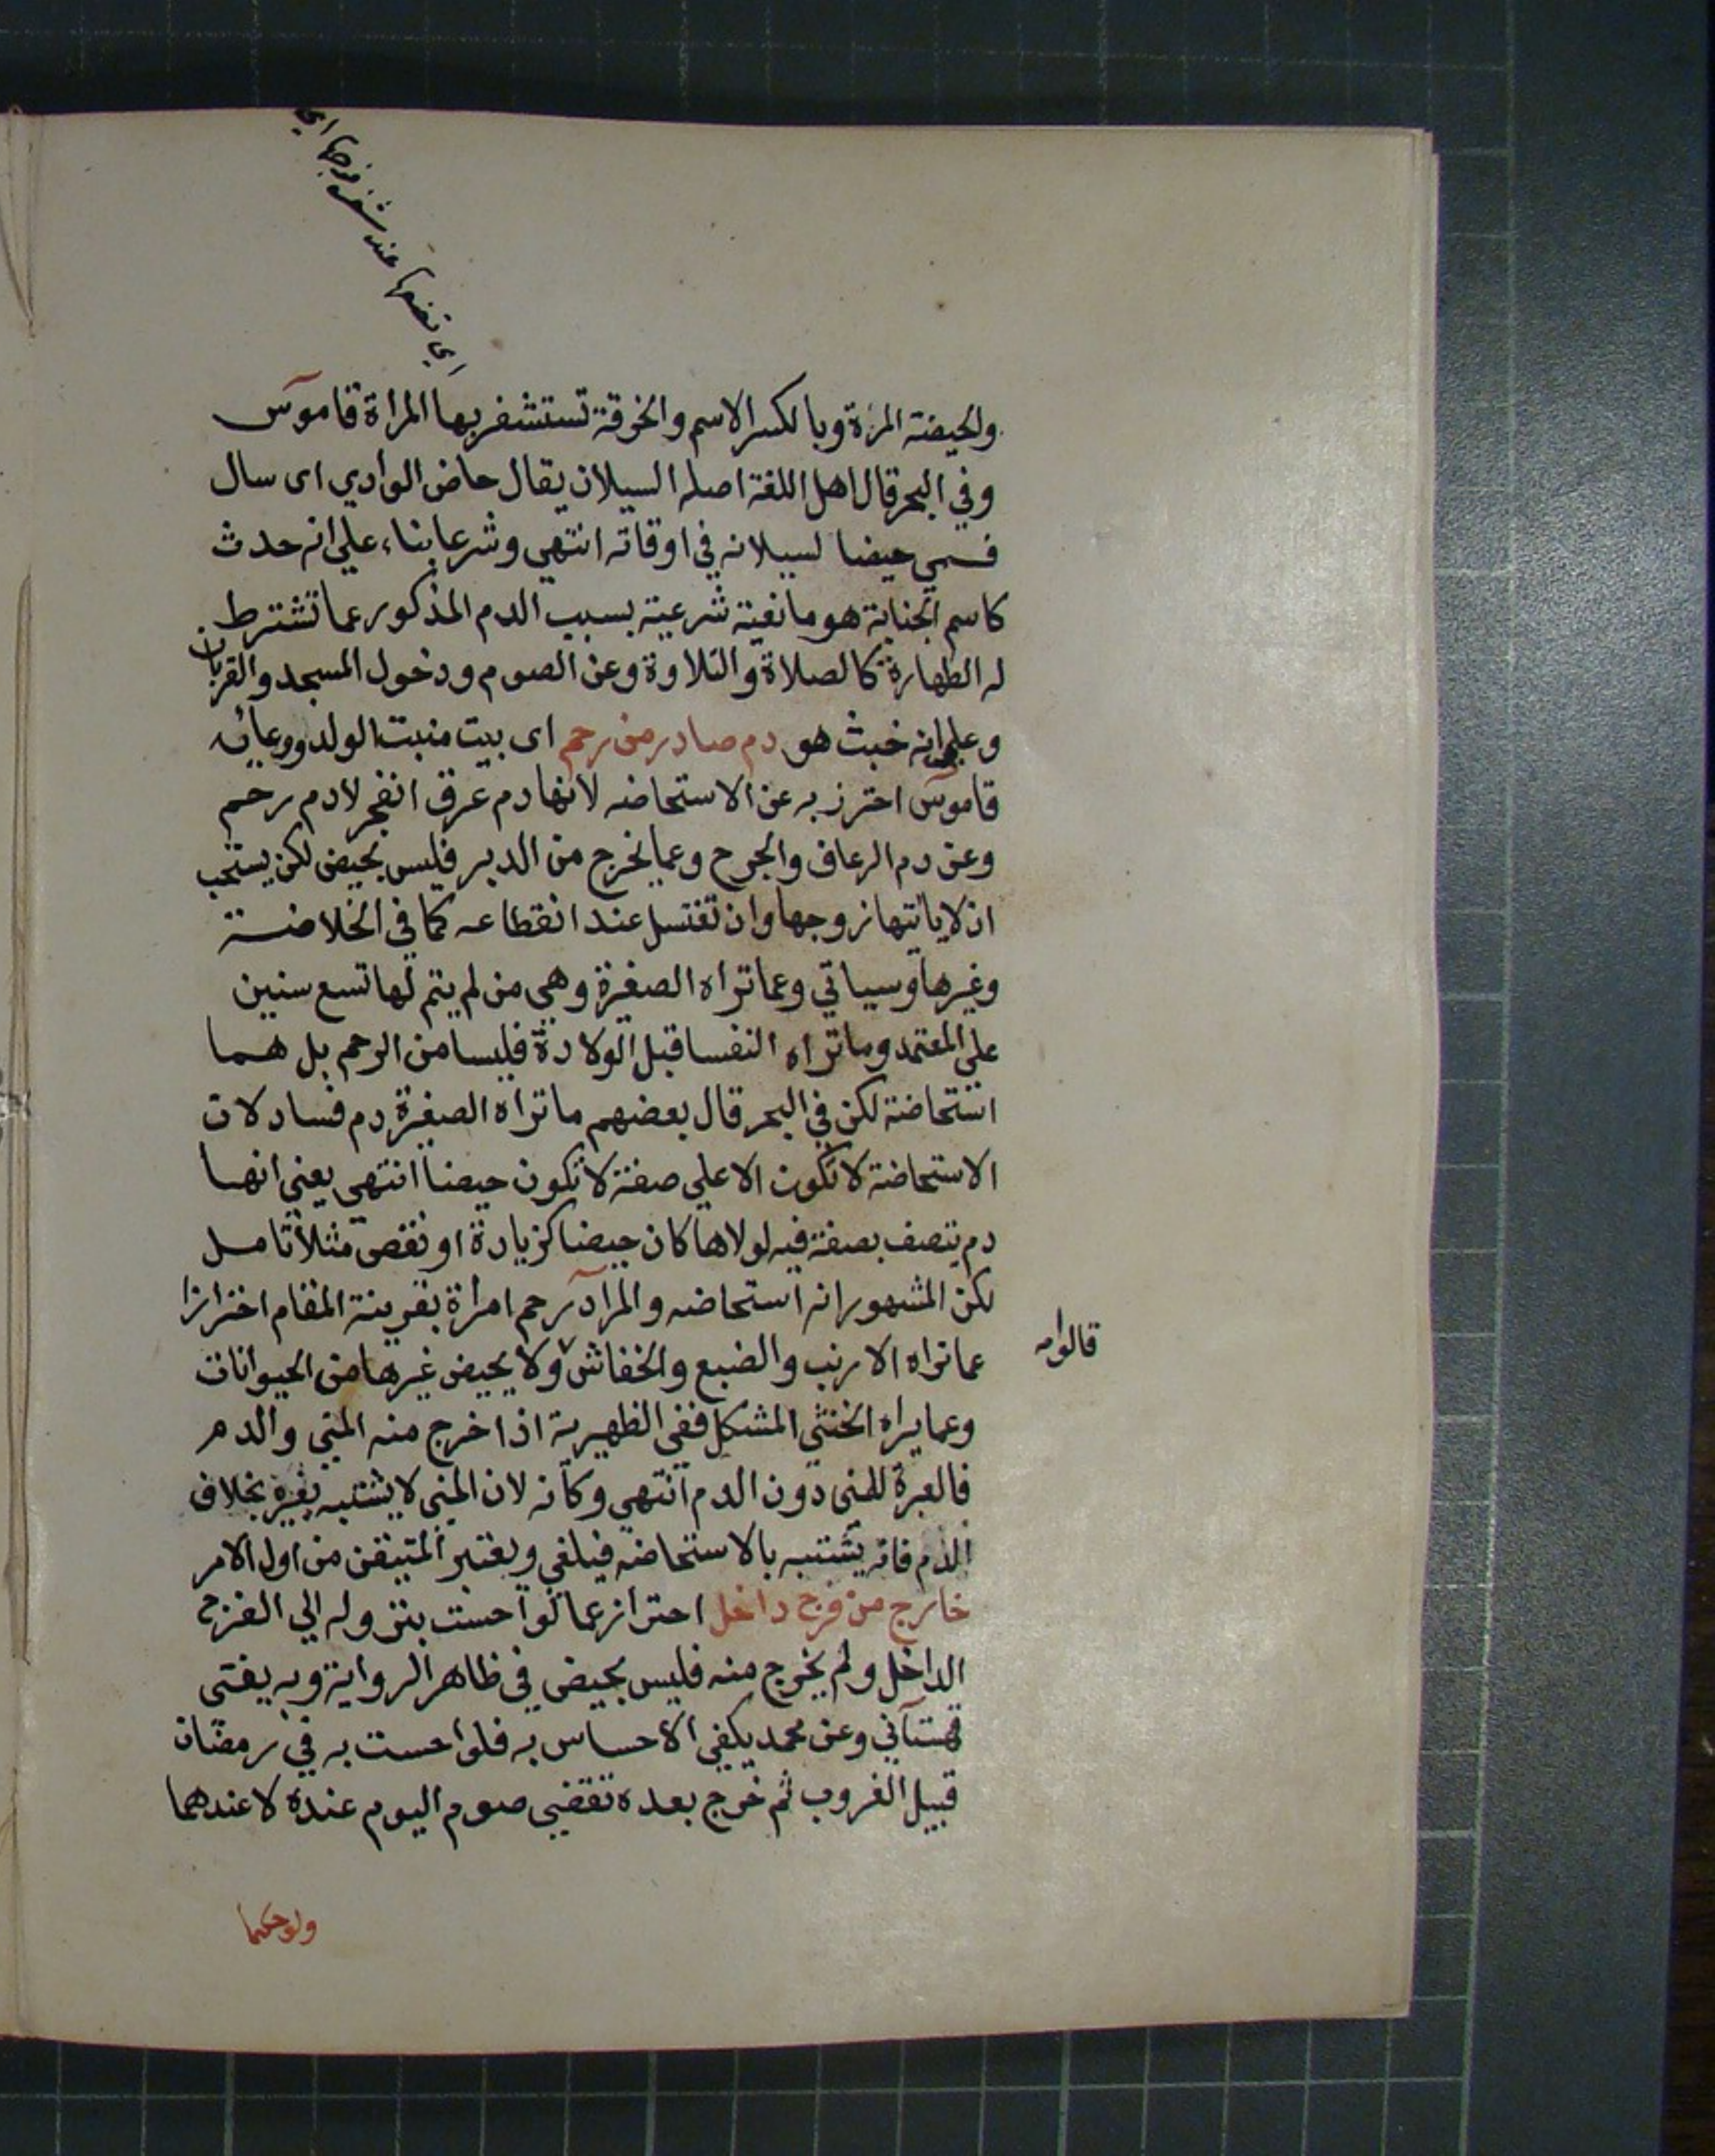 والحيضة المرّة وبالكسر الاسم والخرقة تستشفر بها المراة قاموس
وفي البحر قال اهل اللغة اصله السيلان يقال حاض الوادي اى سال
فسمي حيضا لسيلانه في اوقاته انتهي وشرعا بناء علي انه حدث
كاسم الجنابة هو مانعية شرعية بسبب الدم المذكور عما تشترط
له الطهارة كالصلاة والتلاوة وعن الصوم ودخول المسجد والقربان
وعلي انه خبث هو دم صادر من رحم اى بيت منبت الولد ووعائه
قاموس احترز به عن الاستحاضه لانها دم عرق انفجر لا دم رحم
وعن دم الرعاف والجرح وعما يخرج من الدبر فليس بحيض لكن يستحب
ان لا ياتيها زوجها وان تغتسل عند انقطاعه كما في الخلاصة
وغيرها وسياتي وعما تراه الصغيرة وهي من لم يتم لها تسع سنين
علي المعتمد وما تراه النفسا قبل الولادة فليسا من الرحم بل هما
استحاضة لكن في البحر قال بعضهم ما تراه الصغيرة دم فساد لان
الاستحاضة لا تكون الا علي صفة لا تكون حيضا انتهي يعني انها
دم يتصف بصفة فيه لولاها كان حيضا كزيادة او نقص مثلا تامل
لكن المشهور انه استحاضه والمراد رحم امراة بقرينة المقام احترازا
عما تراه الارنب والضبع والخفاش ولا يحيض غيرها من الحيوانات
قالوا
وعما يراه الخنثي المشكل ففي الظهيرية اذا خرج منه المني والدم
فالعبرة للمنى دون الدم انتهي وكانه لان المني لا يشتبه بغيره بخلاف
الدم فانه يشتبه بالاستحاضه فيلغي ويعتبر المتيقن من اول الامر
خارج من فرج داخل احتراز عما لو احست بنزوله الي الفرج
الداخل ولم يخرج منه فليس بحيض في ظاهر الرواية وبه يفتى
قهستاني وعن محمد يكفي الاحساس به فلو احست به في رمضان
قبيل الغروب ثم خرج بعده تقضي صوم اليوم عنده لا عندهما
ولو حكما